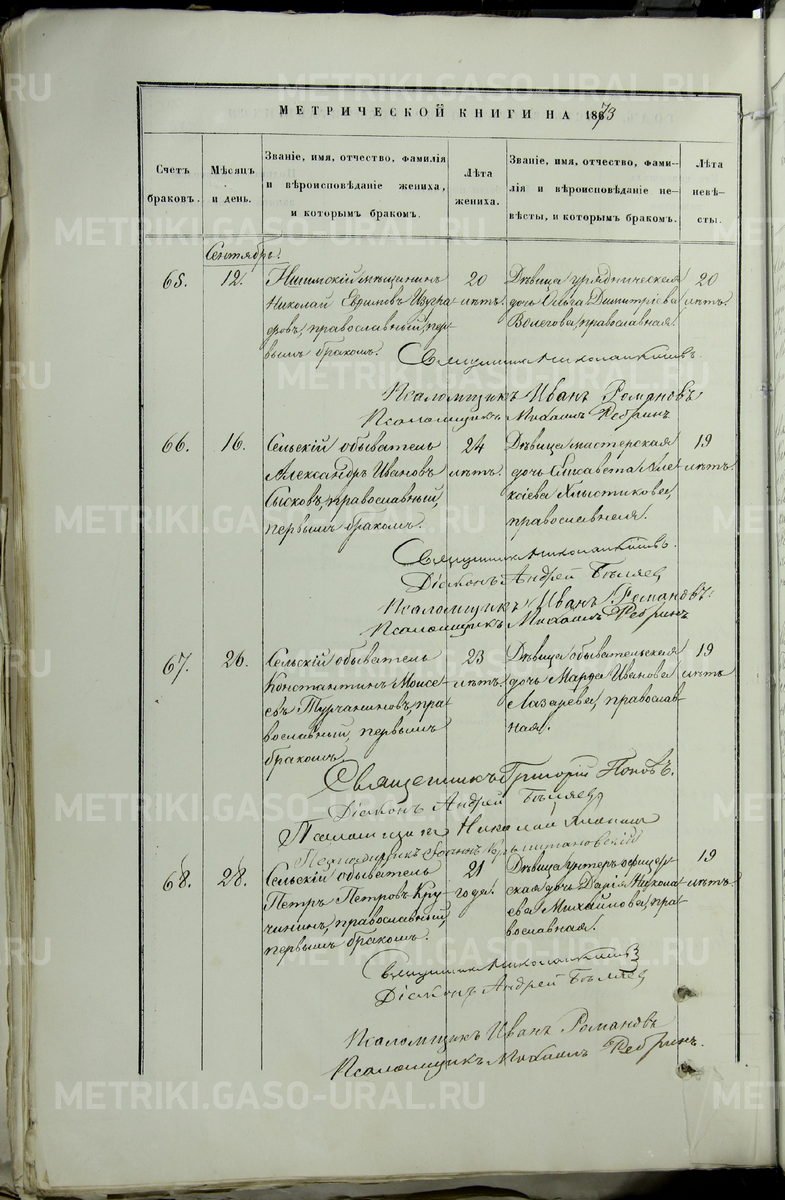 МЕТРИЧЕСКОЙ КНИГИ НА 1873
Счетъ браковъ.
Мѣсяцъ и день.
Званіе, имя, отчество, фамилія и вѣроисповѣданіе жениха, и которымъ бракомъ.
Лѣта жениха.
Званіе, имя, отчество, фами-лія и вѣроисповѣданіе не-вѣсты, и которымъ бракомъ.
Лѣта невѣ-сты.
Сентябрь.
65. 12.
мѣщанинъ
Николай Ефимовъ
православный, пер-
вымъ бракомъ.
20
лѣтъ.
Дѣвица урядническая
дочь Ольга Димитріева
Волегова, православная.
20
лѣтъ.
Священникъ Николай
Псаломщикъ Иванъ Романовъ
Псаломщикъ Михаилъ Ребринъ
66. 16.
Сельскій обыватель
Александръ Ивановъ
Сысковъ, православный,
первымъ бракомъ.
24
лѣтъ.
Дѣвица мастерская
дочь Елисавета Але-
ксіева Хлыстикова,
православная.
19
лѣтъ.
Священникъ Николай
Діаконъ Андрей Бѣляев
Псаломщикъ Иванъ Романовъ
Псаломщикъ Михаилъ Ребринъ
67. 26.
Сельскій обыватель
Константинъ Моисе-
евъ Турчаниновъ, пра-
вославный, первымъ
бракомъ.
23
лѣтъ.
Дѣвица обывательская
дочь Марѳа Иванова
Лазарева, православ-
ная.
19
лѣтъ
Священникъ Григорій Поповъ.
Діаконъ Андрей Бѣляев
Николай
Псаломщикъ
68. 28.
Сельскій обыватель
Петръ Петровъ Кру-
чининъ, православный,
первымъ бракомъ.
21
года.
Дѣвица унтеръ офицер-
ская дочь Дарія Никола-
ева Михайлова, пра-
вославная.
19
лѣтъ.
Священникъ Николай
Діаконъ Андрей Бѣляев
Псаломщикъ Иванъ Романовъ
Псаломщикъ Михаилъ Ребринъ.
METRIKI.GASO-URAL.RU